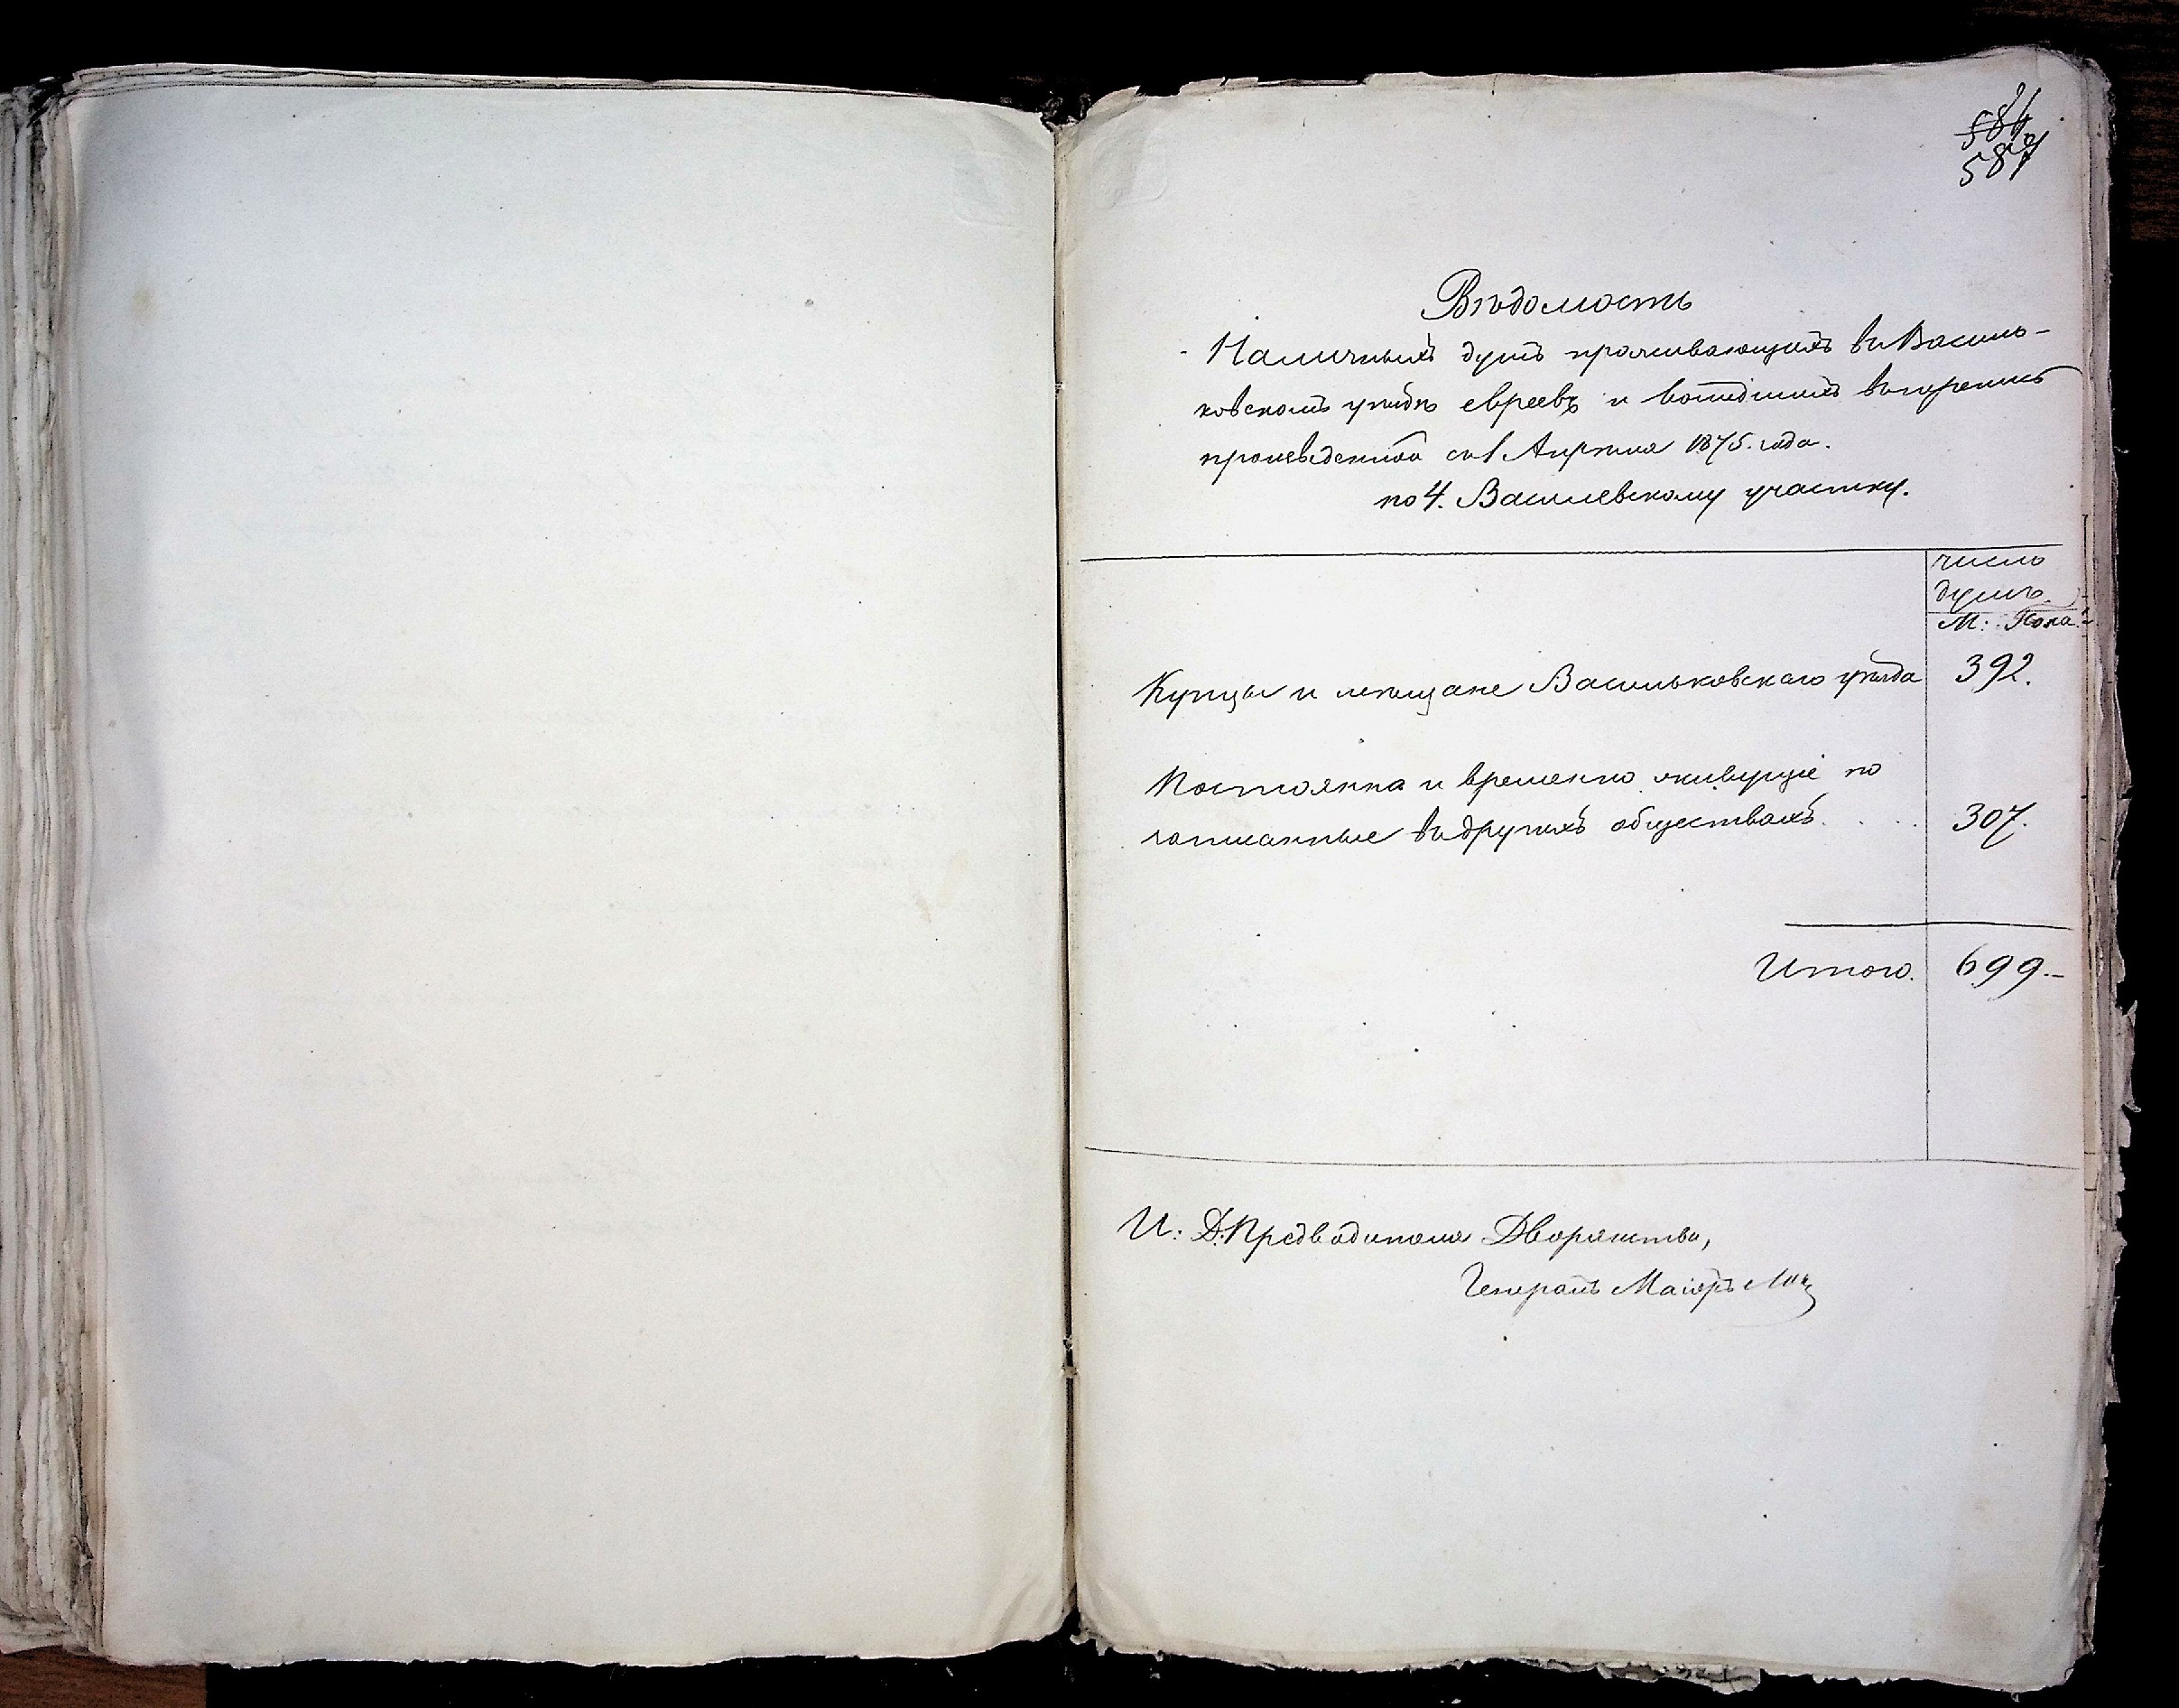 586
587
Вѣдомость
Наличныхъ душъ проживающихъ въ Василь-
ковскомъ уѣздѣ евреевъ и вошедшихъ въ перепись
произведенной съ 1 Апрѣля 1875. года.
по 4. Васильевскому участку.
число
душъ.
М: Пола.
Купцы и мещане Васильковскаго уѣзда 392.
Постоянна и временно живущіе но
записанные въ другихъ обществахъ. . . . 307.
Итого. 699.-
И: Д: Предводителя Дворянства,
Генералъ Маіоръ